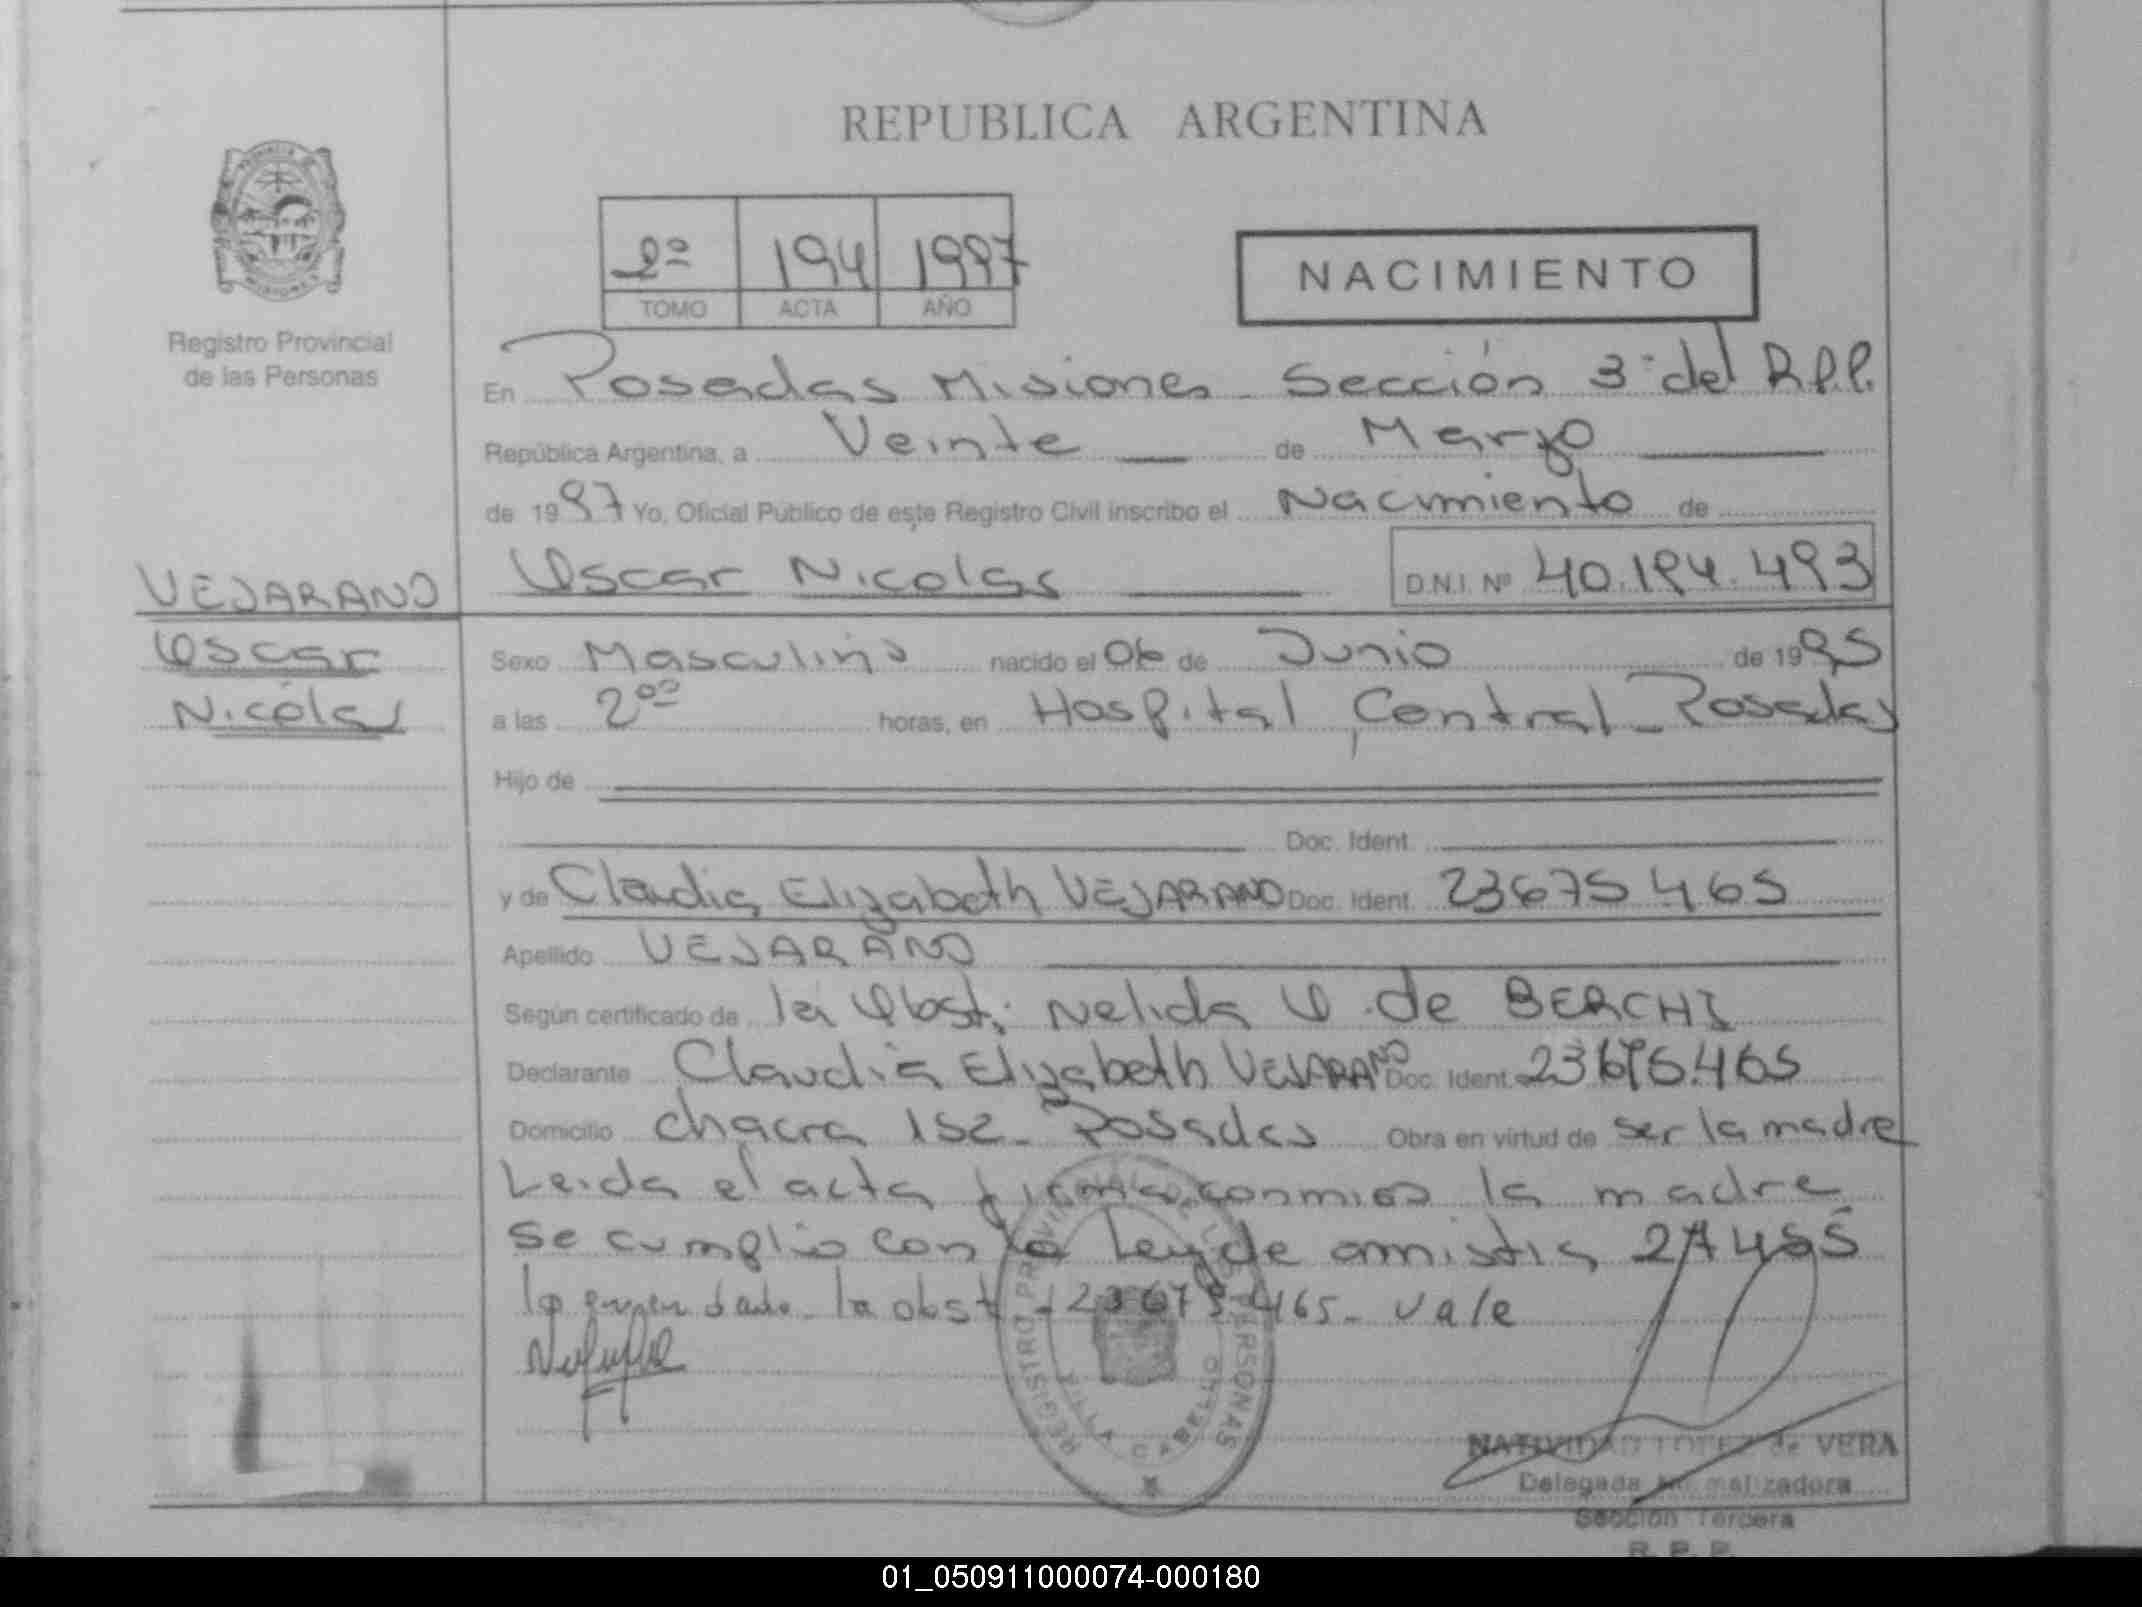 REPUBLICA ARGENTINA
PROVINCIA DE
MISIONES
Registro Provincial
de las Personas
2º 194 1997
TOMO ACTA AÑO
NACIMIENTO
En Posadas Misiones - Sección 3ª del R.P.P.
República Argentina, a Veinte de Marzo
de 1997 Yo, Oficial Público de este Registro Civil inscribo el Nacimiento de
Oscar Nicolas D.N.I. Nº 40.194.493
VEJARANO
Oscar
Nicolas
Sexo Masculino nacido el 06 de Junio de 1995
a las 2⁰⁰ horas, en Hospital Central - Posadas
Hijo de
Doc. Ident.
y de Claudia Elizabeth VEJARANO Doc. Ident. 23675465
Apellido VEJARANO
Según certificado de la Obst; Nelida O. de BERCHI
Declarante Claudia Elizabeth VEJARANO Doc. Ident. 23675.465
Domicilio chacra 152 - Posadas Obra en virtud de ser la madre
Leida el acta firma conmigo la madre
Se cumplio con la Ley de amnistia
lo enmendado - la obst - 23675465 - vale
REGISTRO PROVINCIAL DE LAS PERSONAS
VILLA CABELLO
NATIVIDAD LOPEZ de VERA
Delegada Normalizadora
Sección Tercera
R. P. P.
01_050911000074-000180